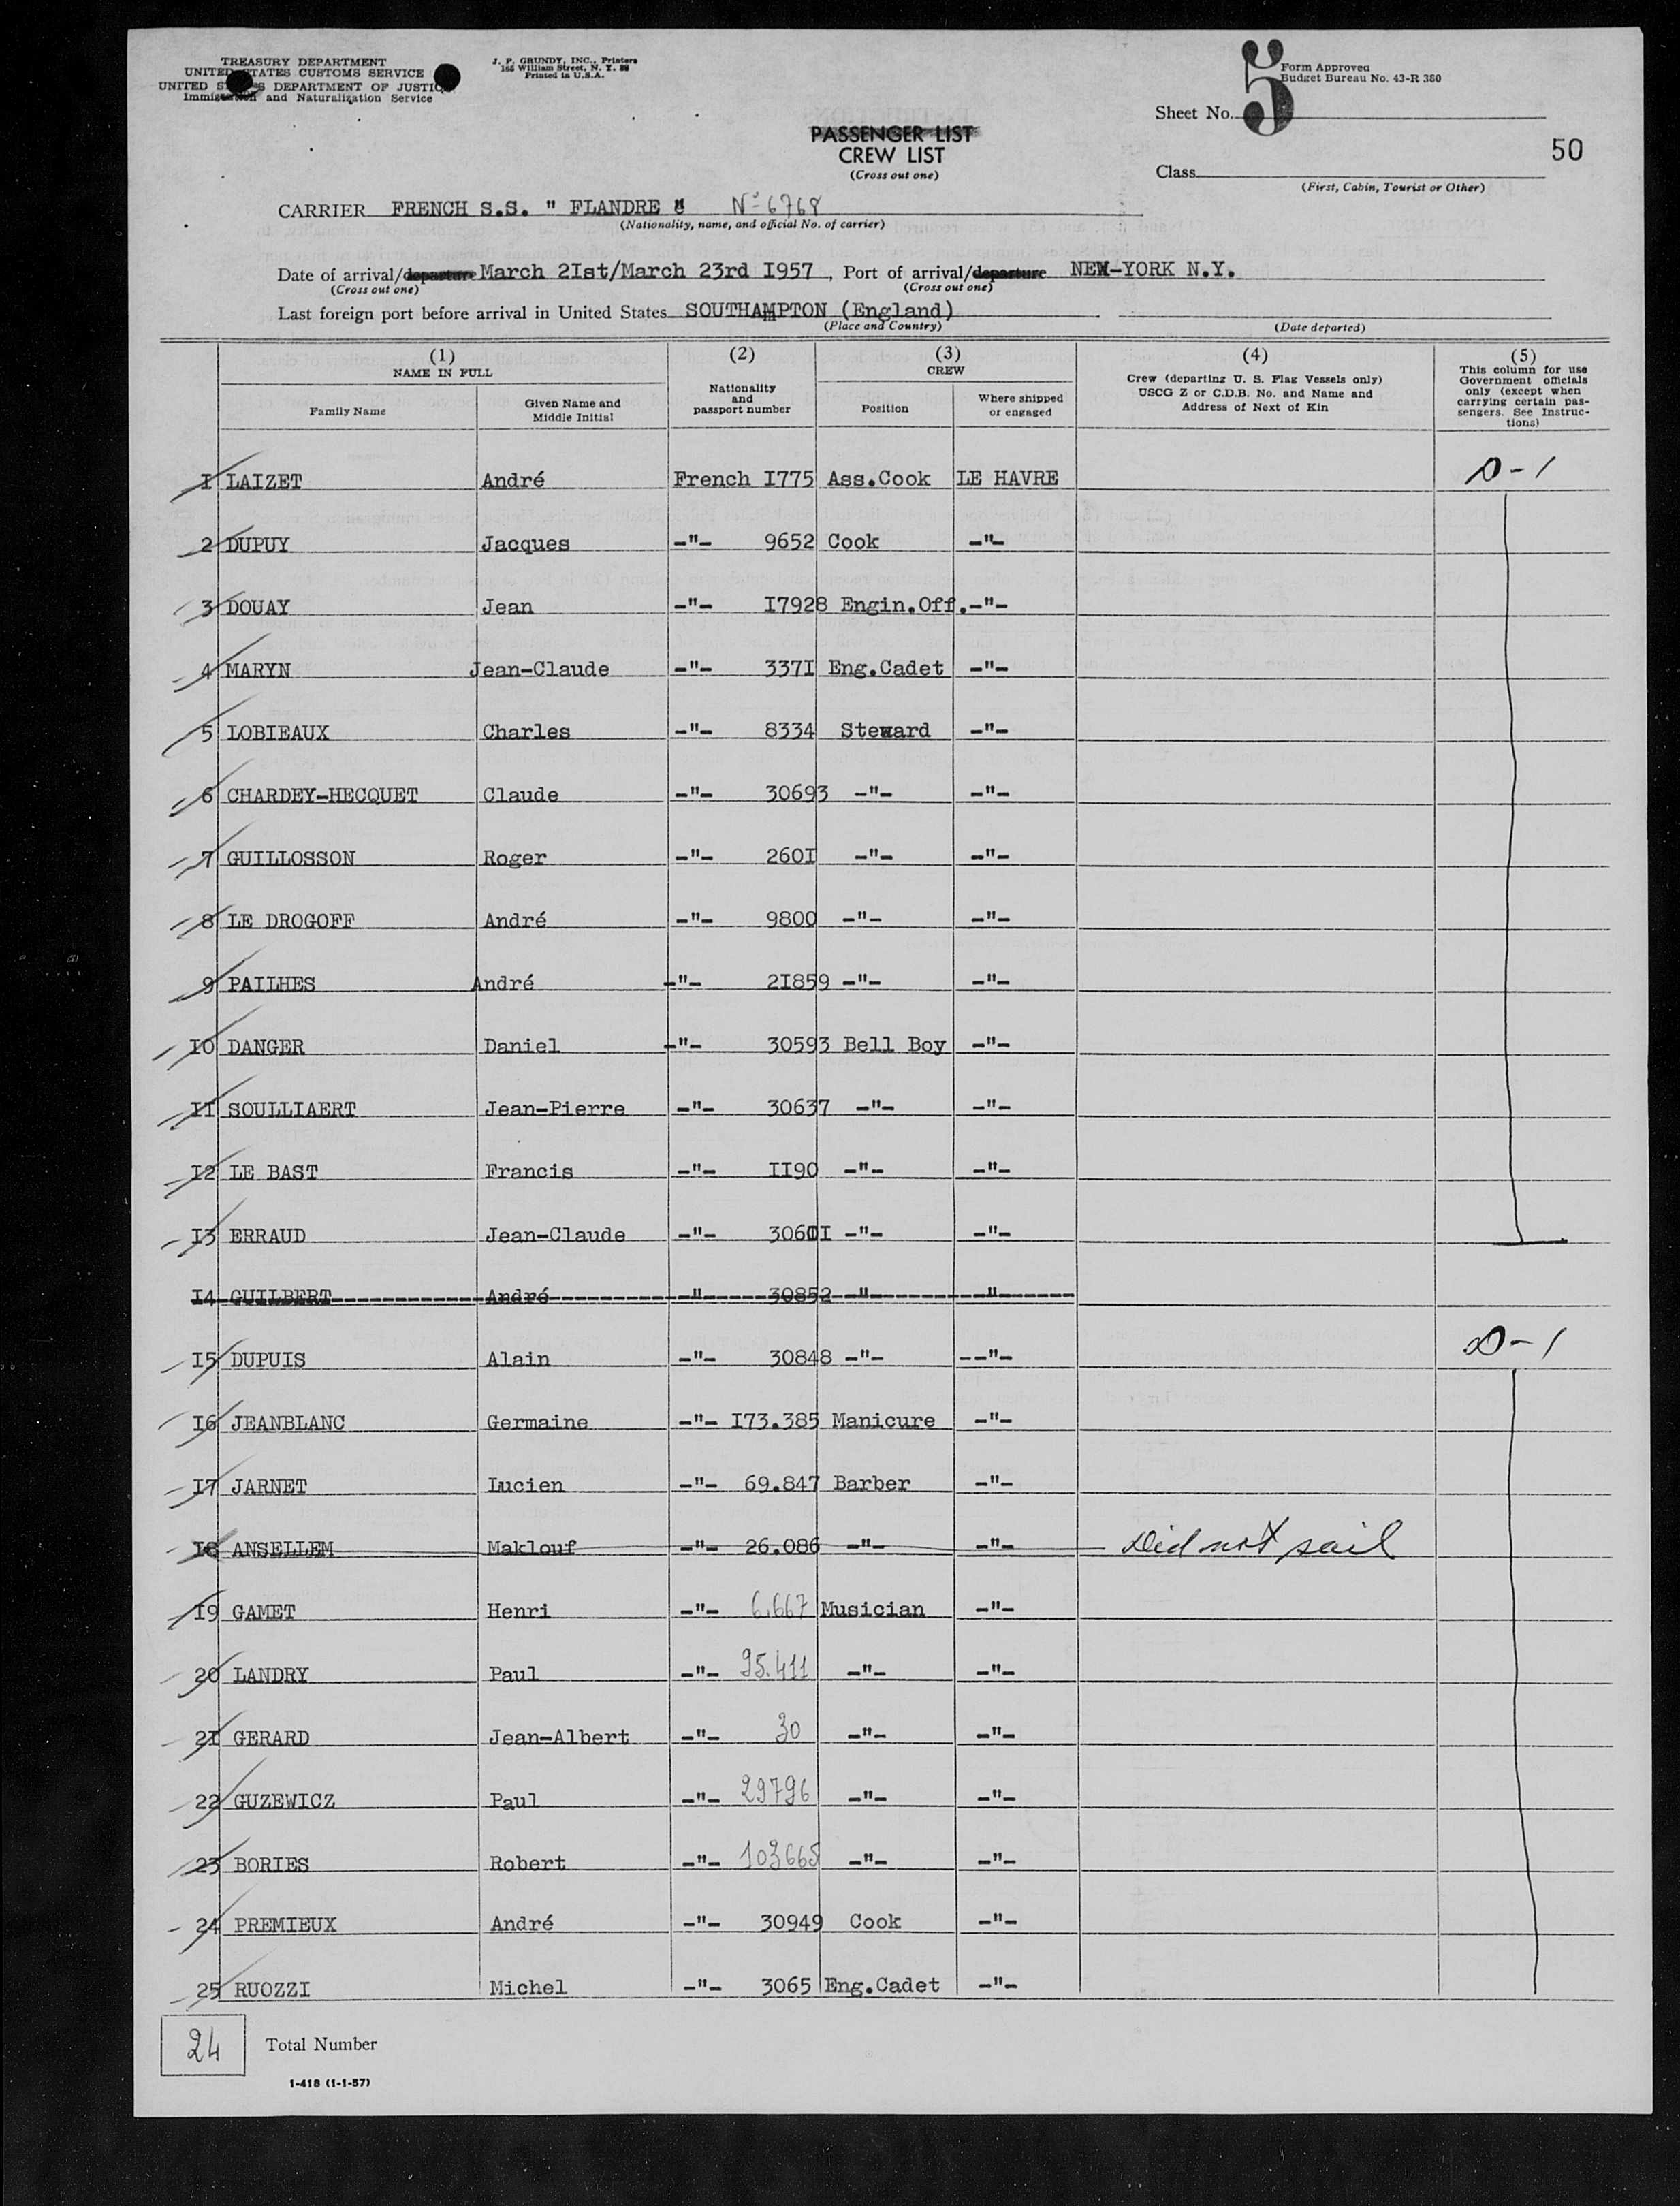 TREASURY DEPARTMENT
UNITED STATES CUSTOMS SERVICE
UNITED STATES DEPARTMENT OF JUSTICE
Immigration and Naturalization Service
J. P. GRUNDY, INC., Printers
Printed in U.S.A.
Form Approved
Budget Bureau No. 43-R 380
Sheet No. 5
PASSENGER LIST
CREW LIST
(Cross out one)
50
Class
(First, Cabin, Tourist or Other)
CARRIER FRENCH S.S. " FLANDRE " Nº 6768
(Nationality, name, and official No. of carrier)
Date of arrival/departure March 2Ist/March 23rd I957, Port of arrival/departure NEW-YORK N.Y.
(Cross out one) (Cross out one)
Last foreign port before arrival in United States SOUTHAMPTON (England)
(Place and Country) (Date departed)
(1) NAME IN FULL
Family Name
Given Name and Middle Initial
(2) Nationality and passport number
(3) CREW
Position
Where shipped or engaged
(4) Crew (departing U. S. Flag Vessels only) USCG Z or C.D.B. No. and Name and Address of Next of Kin
(5) This column for use Government officials only (except when carrying certain passengers. See Instructions)
I LAIZET André French I775 Ass.Cook LE HAVRE D-1
2 DUPUY Jacques -"- 9652 Cook -"-
3 DOUAY Jean -"- I7928 Engin.Off. -"-
4 MARYN Jean-Claude -"- 337I Eng.Cadet -"-
5 LOBIEAUX Charles -"- 8334 Steward -"-
6 CHARDEY-HECQUET Claude -"- 30693 -"- -"-
7 GUILLOSSON Roger -"- 260I -"- -"-
8 LE DROGOFF André -"- 9800 -"- -"-
9 PAILHES André -"- 2I859 -"- -"-
I0 DANGER Daniel -"- 30593 Bell Boy -"-
II SOULLIAERT Jean-Pierre -"- 30637 -"- -"-
I2 LE BAST Francis -"- II90 -"- -"-
I3 ERRAUD Jean-Claude -"- -"- -"-
I4 GUILBERT André -"- 30852 -"- -"-
I5 DUPUIS Alain -"- 30848 -"- --"- D-1
I6 JEANBLANC Germaine -"- I73.385 Manicure -"-
I7 JARNET Lucien -"- 69.847 Barber -"-
I8 ANSELLEM Maklouf -"- 26.086 -"- -"- Did not sail
I9 GAMET Henri -"- 6.667 Musician -"-
20 LANDRY Paul -"- 95.411 -"- -"-
2I GERARD Jean-Albert -"- 30 -"- -"-
22 GUZEWICZ Paul -"- 29796 -"- -"-
23 BORIES Robert -"- 103665 -"- -"-
24 PREMIEUX André -"- 30949 Cook -"-
25 RUOZZI Michel -"- 3065 Eng.Cadet -"-
24 Total Number
1-418 (1-1-57)